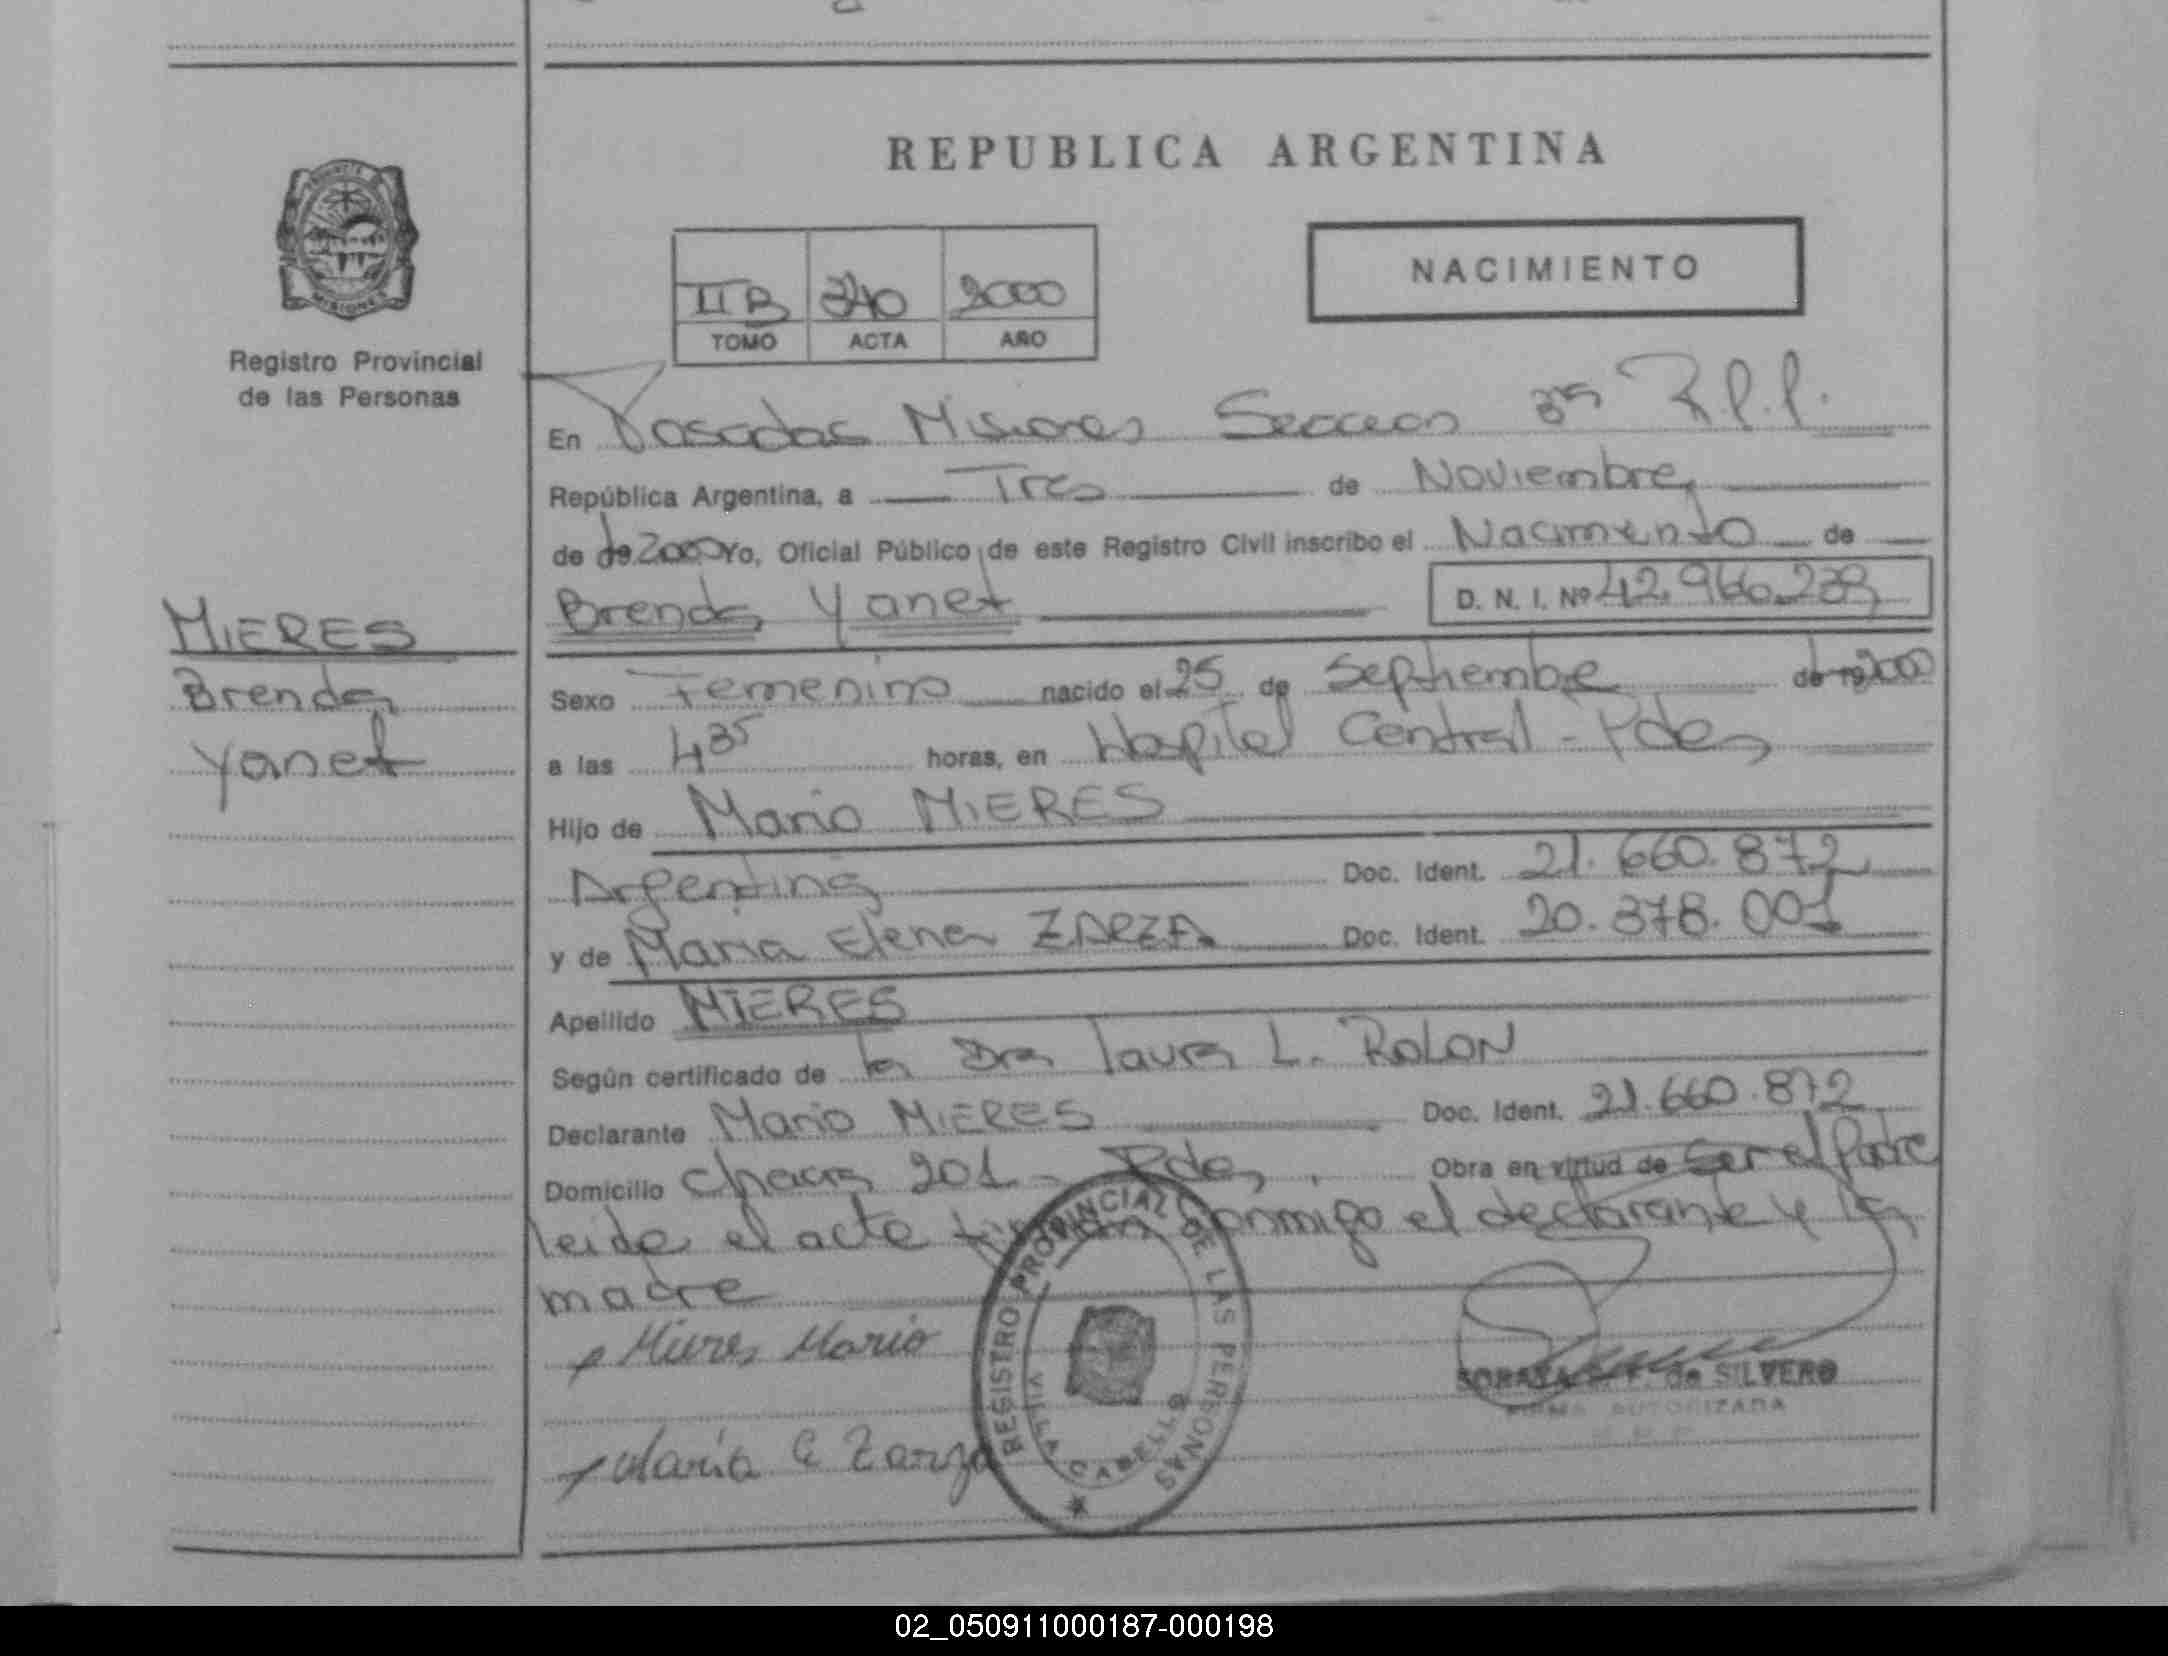 REPUBLICA ARGENTINA
Registro Provincial
de las Personas
IIB 340 2000
TOMO ACTA AÑO
NACIMIENTO
En Posadas Misiones Seccion 3ra R.P.P.
República Argentina, a Tres de Noviembre
de de 2000 Yo, Oficial Público de este Registro Civil inscribo el Nacimiento de
Brenda Yanet D. N. I. Nº 42.966.239
MIERES
Brenda
Yanet
Sexo Femenino nacido el 25 de Septiembre de 2000
a las 4 35 horas, en Hospital Central - Pdas
Hijo de Mario MIERES
Argentina Doc. Ident. 21.660.872
y de Maria Elena ZARZA Doc. Ident. 20.378.001
Apellido MIERES
Según certificado de la Dra Laura L. ROLON
Declarante Mario MIERES Doc. Ident. 21.660.872
Domicilio Chacra 201 - Pdas. Obra en virtud de ser el Padre
leida el acta firman conmigo el declarante y la
madre
Mieres Mario
Maria E Zarza
REGISTRO PROVINCIAL DE LAS PERSONAS
VILLA CABELLO
F. de SILVERO
FIRMA AUTORIZADA
02_050911000187-000198